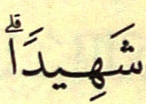 شَهِيدًاۗ